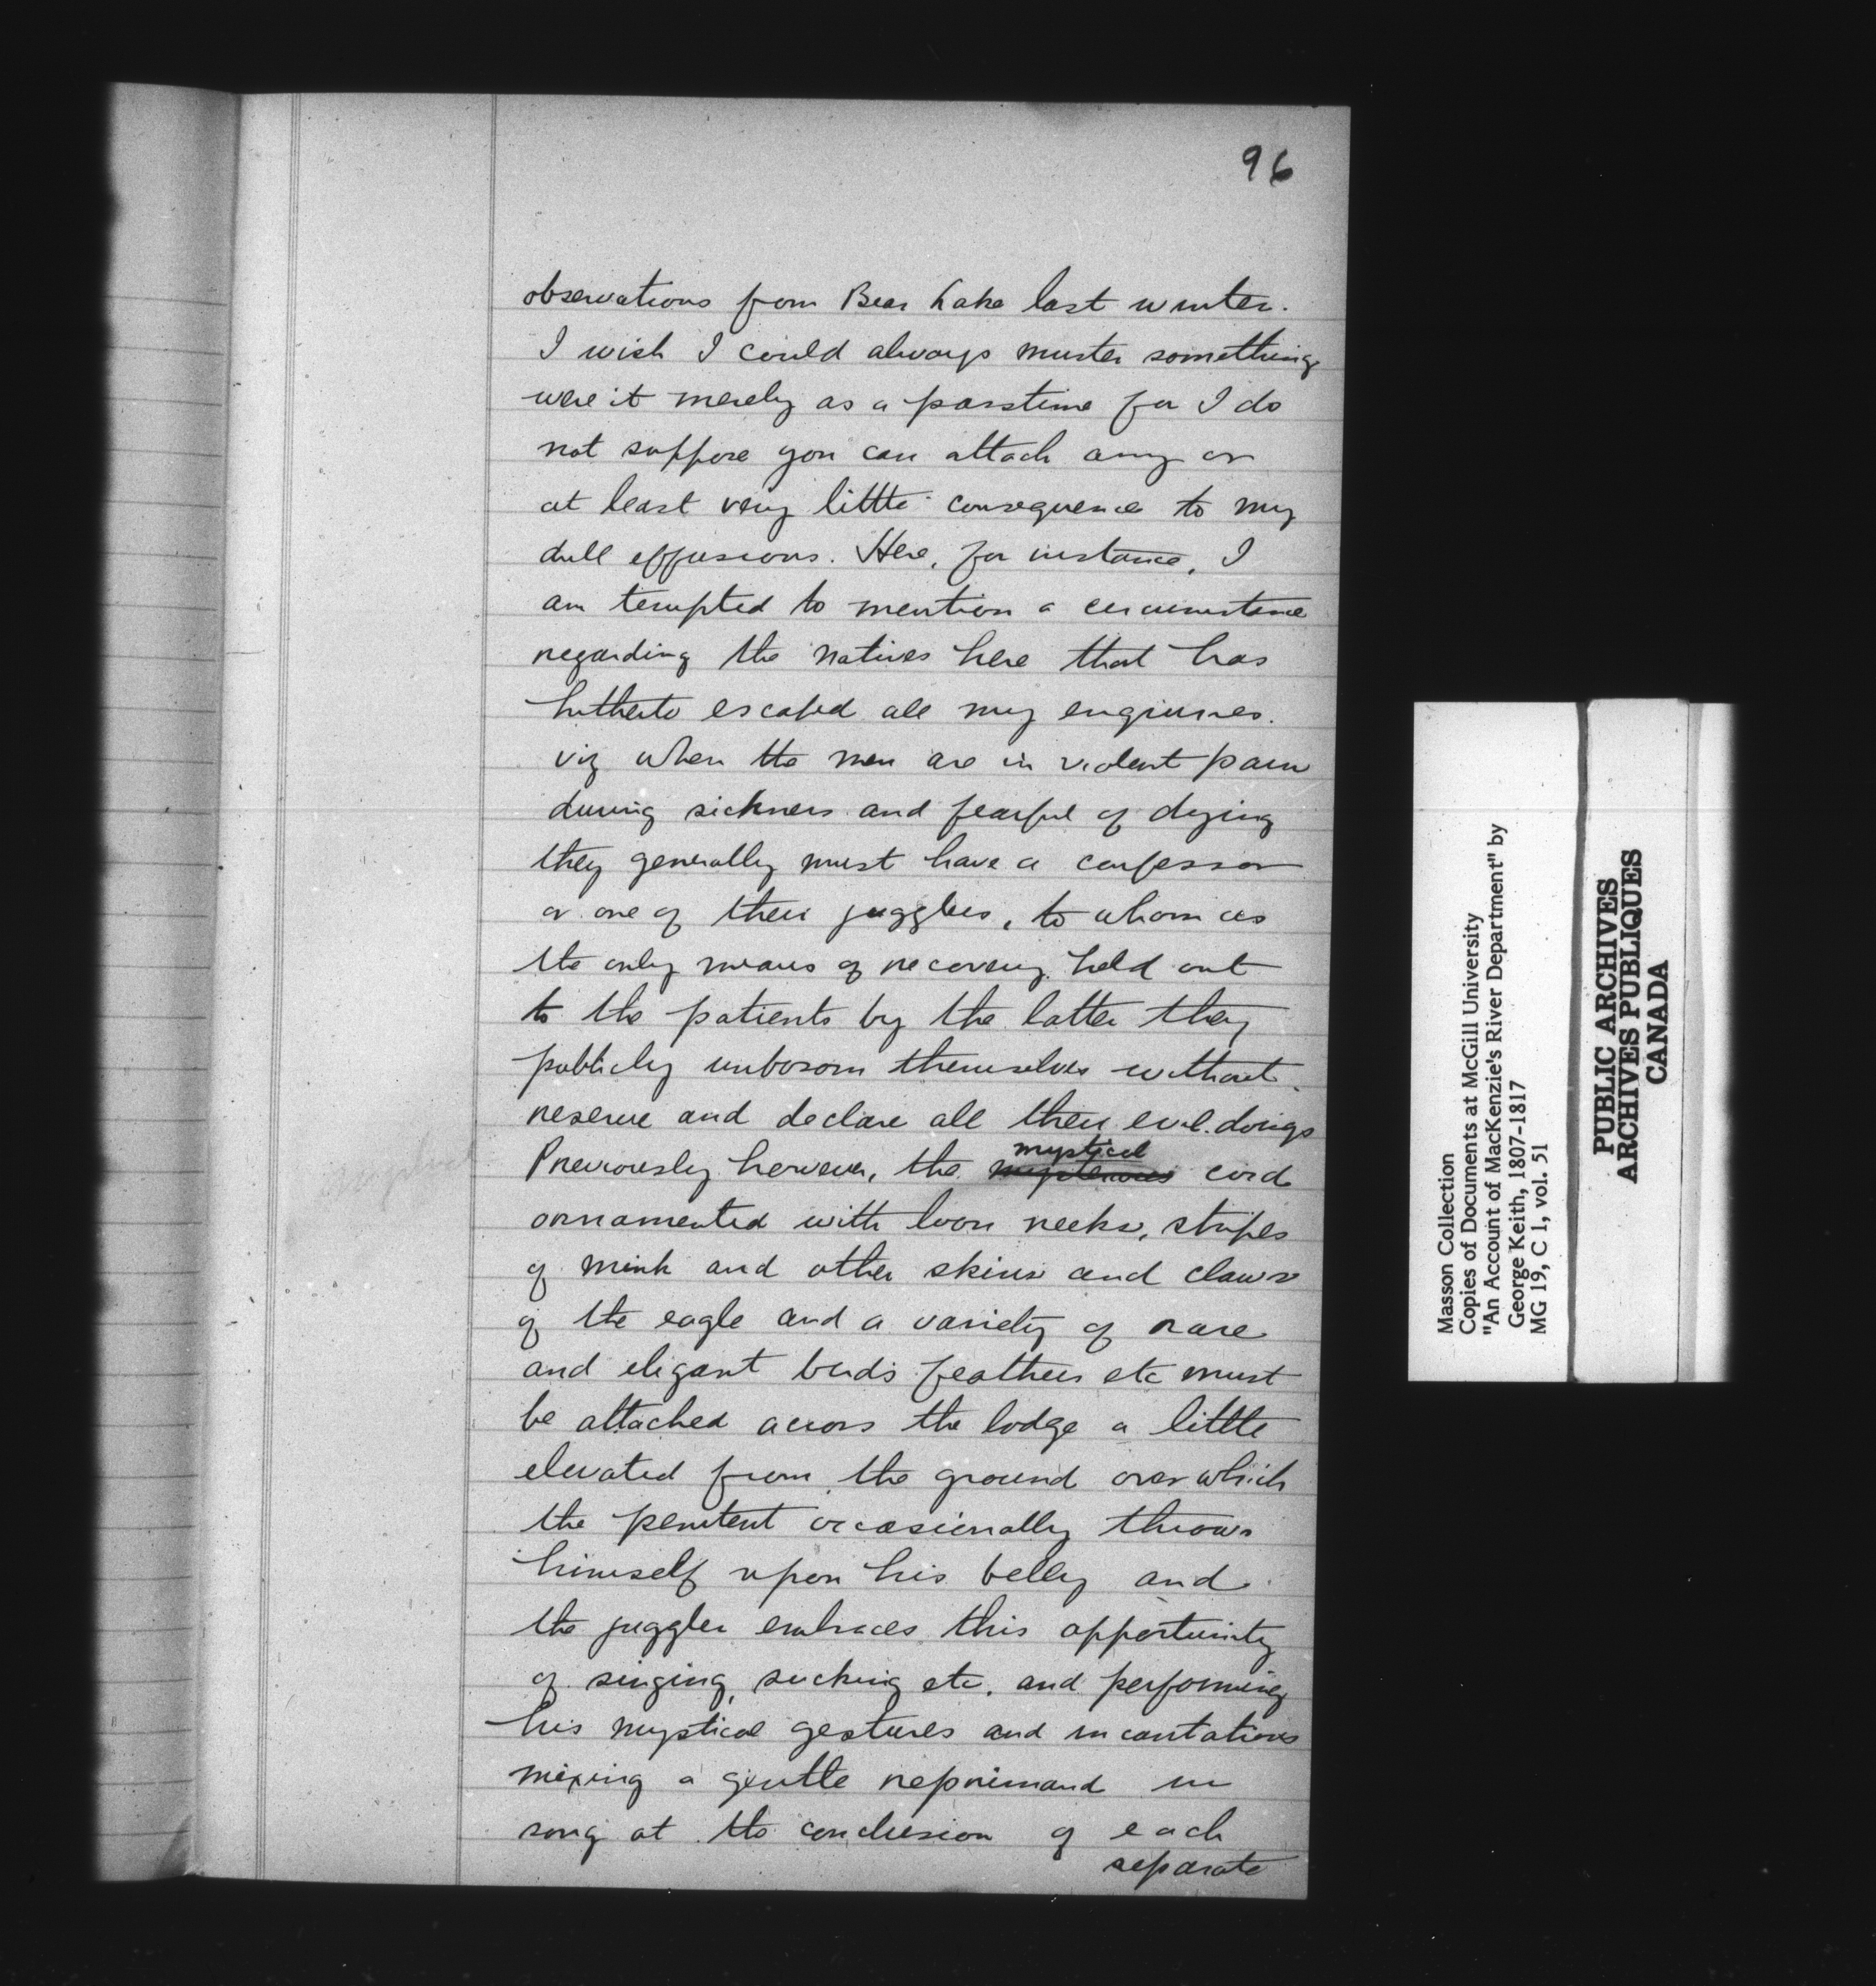 96
observations from Bear Lake last winter.
I wish I could always muster something
were it merely as a passtime for I do
not suppose you can attach any or
at least very little consequence to my
dull effusions. Here, for instance, I
am tempted to mention a circumstance
regarding the natives here that has
hitherto escaped all my enquiries.
viz when the men are in violent pain
during sickness and fearful of dying
they generally must have a confessor
or one of their jugglers, to whom as
the only means of recovery held out
to the patients by the latter they
publicly unbosom themselves without
reserve and declare all their evil doings
Previously however, the mystical cord
ornamented with loon necks, stripes
of mink and other skins and claws
of the eagle and a variety of rare
and elegant birds feathers etc must
be attached across the lodge a little
elevated from the ground over which
the penitent occasionally throws
himself upon his belly and
the juggler embraces this opportunity
of singing, sucking etc. and performing
his mystical gestures and incantations
mixing a gentle reprimand in
song at the conclusion of each
separate
Masson Collection
Copies of Documents at McGill University
"An Account of MacKenzie's River Department" by
George Keith, 1807-1817
MG 19, C 1, vol. 51
PUBLIC ARCHIVES
ARCHIVES PUBLIQUES
CANADA